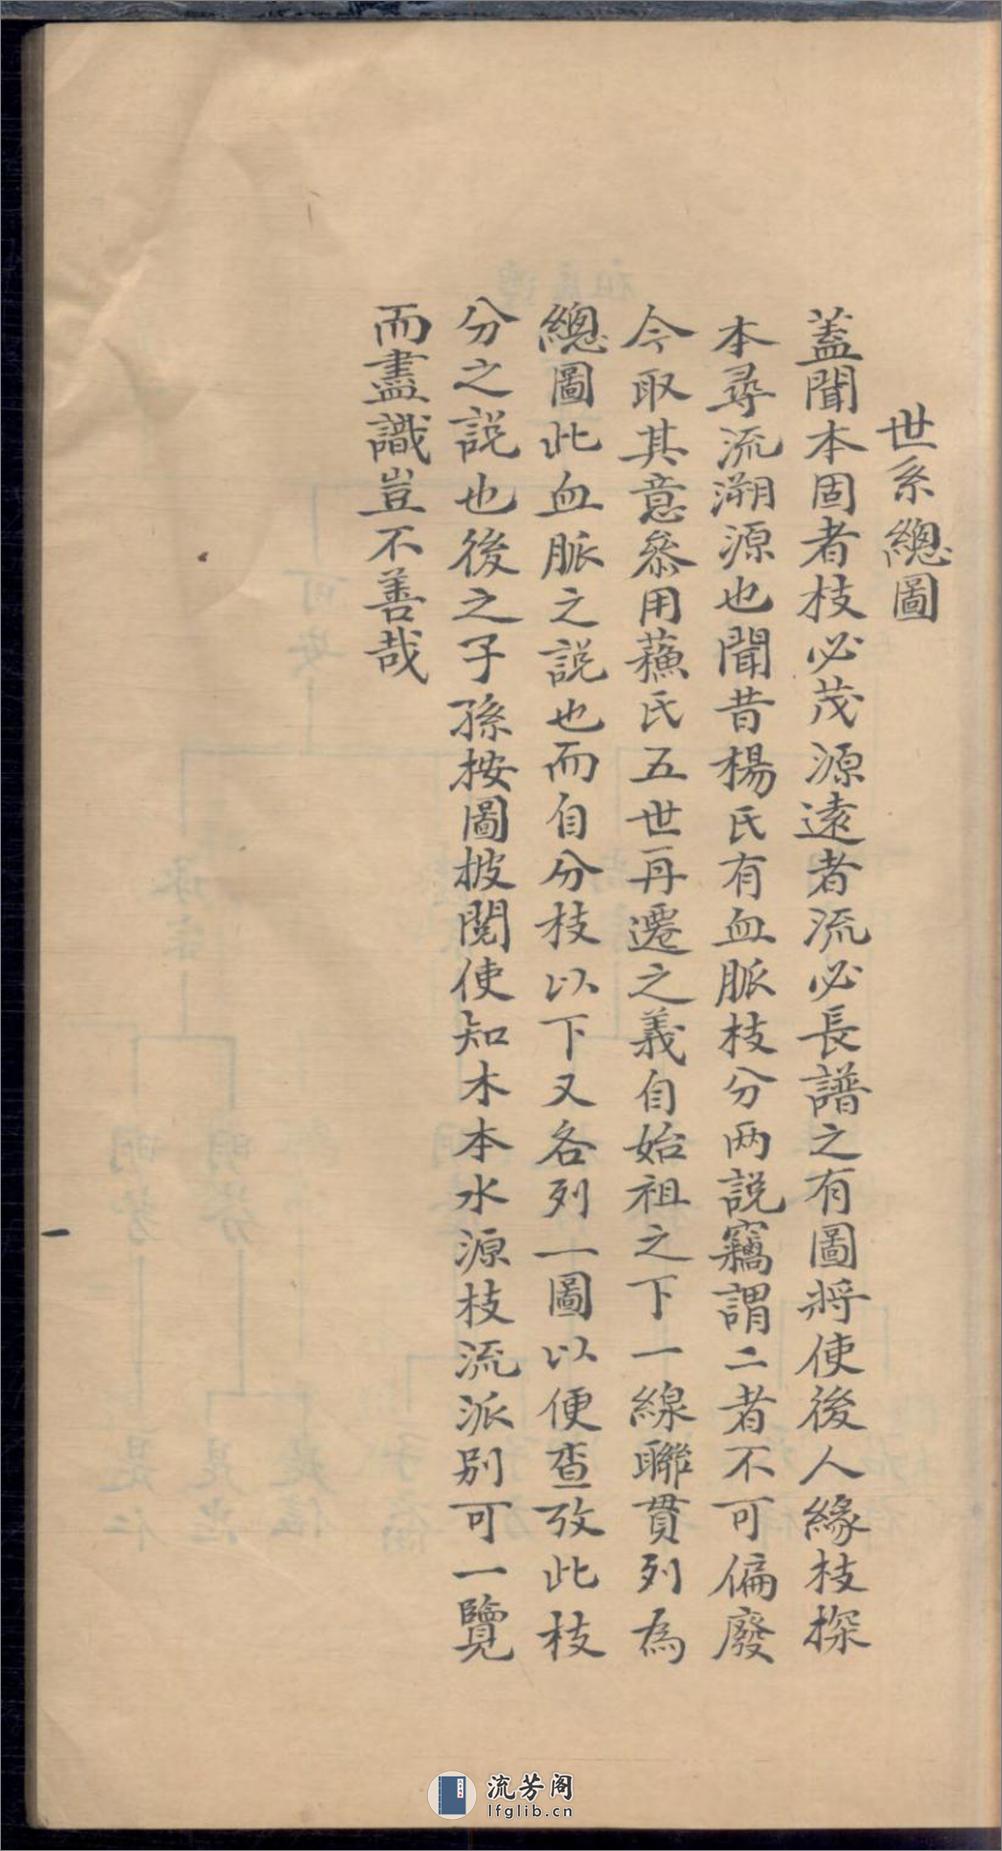 世系總圖
蓋聞本固者枝必茂源遠者流必長譜之有圖將使後人緣枝探
本尋流溯源也聞昔楊氏有血脈枝分两説竊謂二者不可偏廢
今取其意叅用蘓氏五世再遷之義自始祖之下一線聯貫列為
總圖此血脈之説也而自分枝以下又各列一圖以便查攷此枝
分之説也後之子孫按圖披閲使知木本水源枝流派别可一覽
而盡識豈不善哉
流芳阁
lfglib.cn